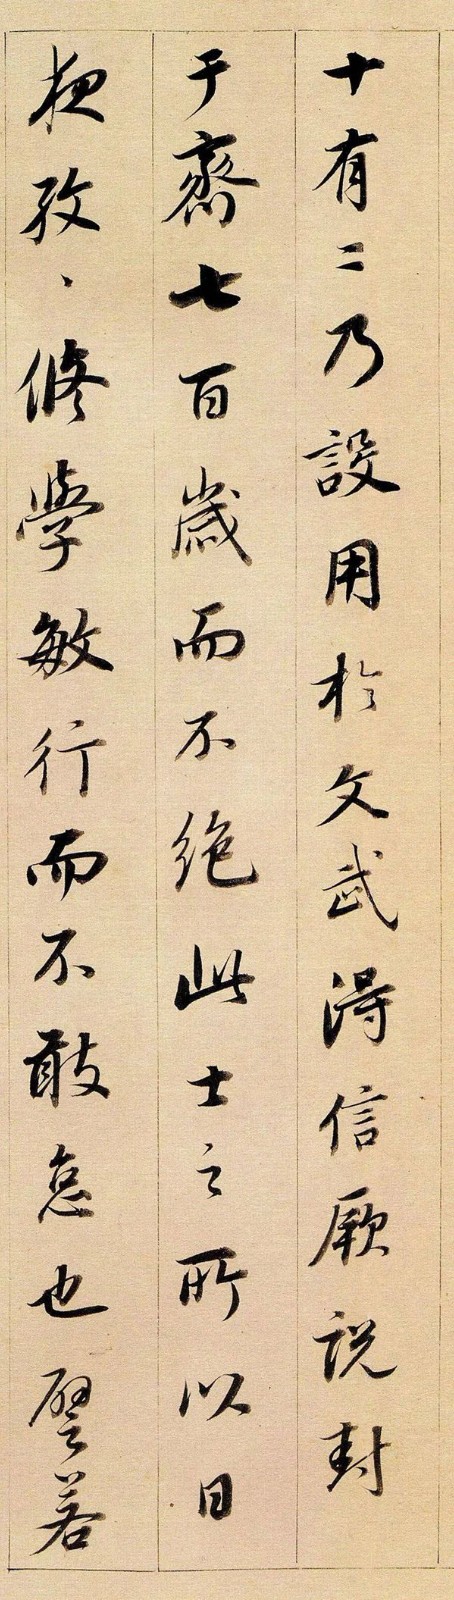 十有二乃設用於文武得信厥説封
于齊七百歲而不絕此士之所以日
夜孜、修學敏行而不敢怠也譬若